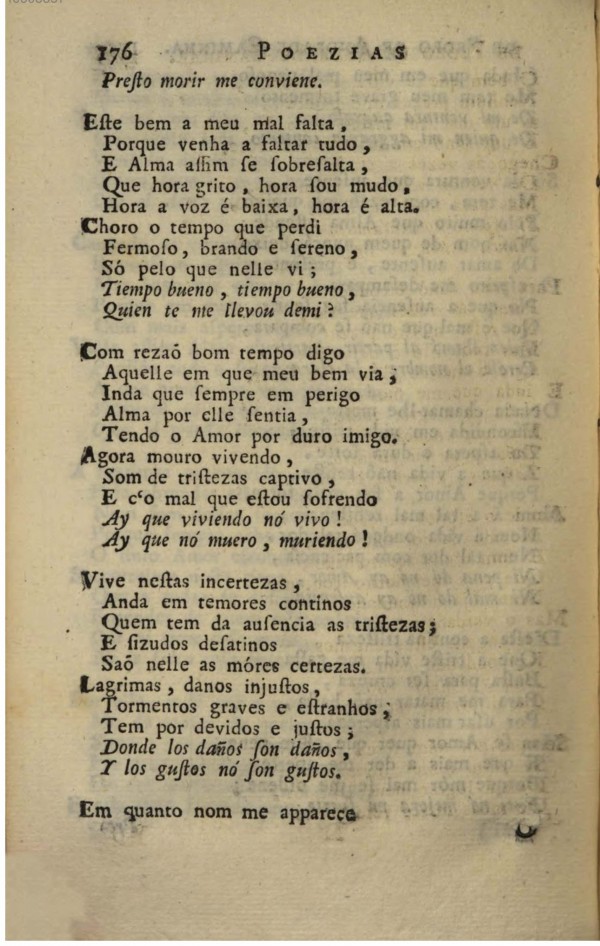 176 POEZIAS
Preſto morir me conviene.
Eſte bem a meu mal falta,
Porque venha a faltar tudo,
E Alma aſſim ſe ſobreſalta,
Que hora grito, hora ſou mudo,
Hora a voz é baixa, hora é alta.
Choro o tempo que perdi
Fermoſo, brando e ſereno,
Só pelo que nelle vi;
Tiempo bueno, tiempo bueno,
Quien te me llevou demi?
Com rezaõ bom tempo digo
Aquelle em que meu bem via;
Inda que ſempre em perigo
Alma por elle ſentia,
Tendo o Amor por duro imigo.
Agora mouro vivendo,
Som de triſtezas captivo,
E c'o mal que eſtou ſofrendo
Ay que viviendo nó vivo!
Ay que nó muero, muriendo!
Vive neſtas incertezas,
Anda em temores continos
Quem tem da auſencia as triſtezas;
E ſizudos deſatinos
Saõ nelle as móres certezas.
Lagrimas, danos injuſtos,
Tormentos graves e eſtranhos;
Tem por devidos e juſtos;
Donde los daños ſon daños,
Y los guſtos nó ſon guſtos.
Em quanto nom me apparece